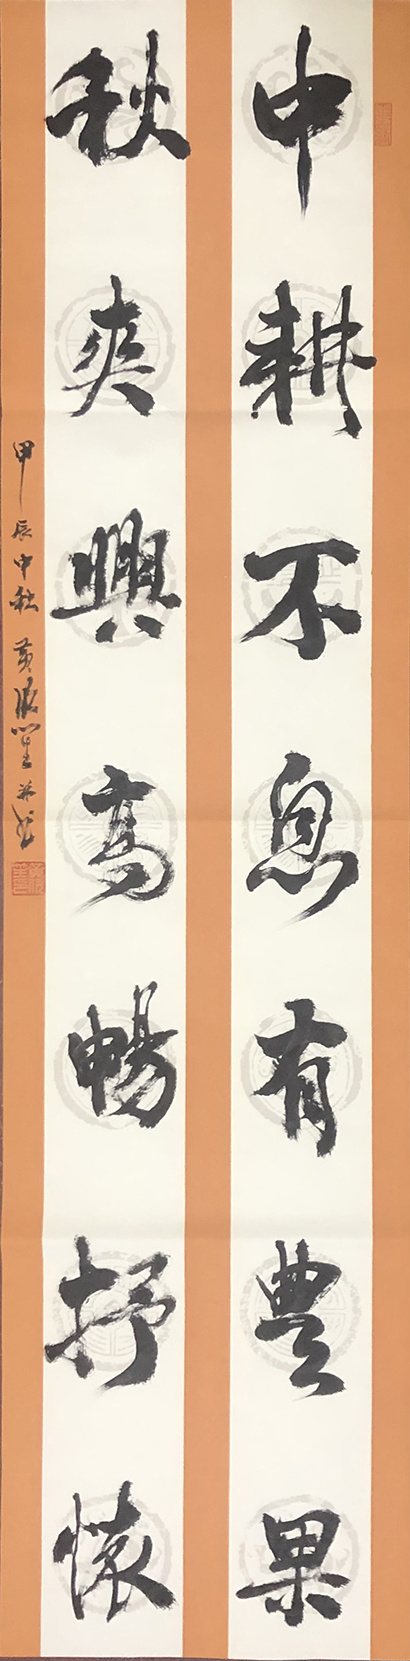 中耕不息有豐果
秋爽興高暢抒懷
甲辰中秋 黃